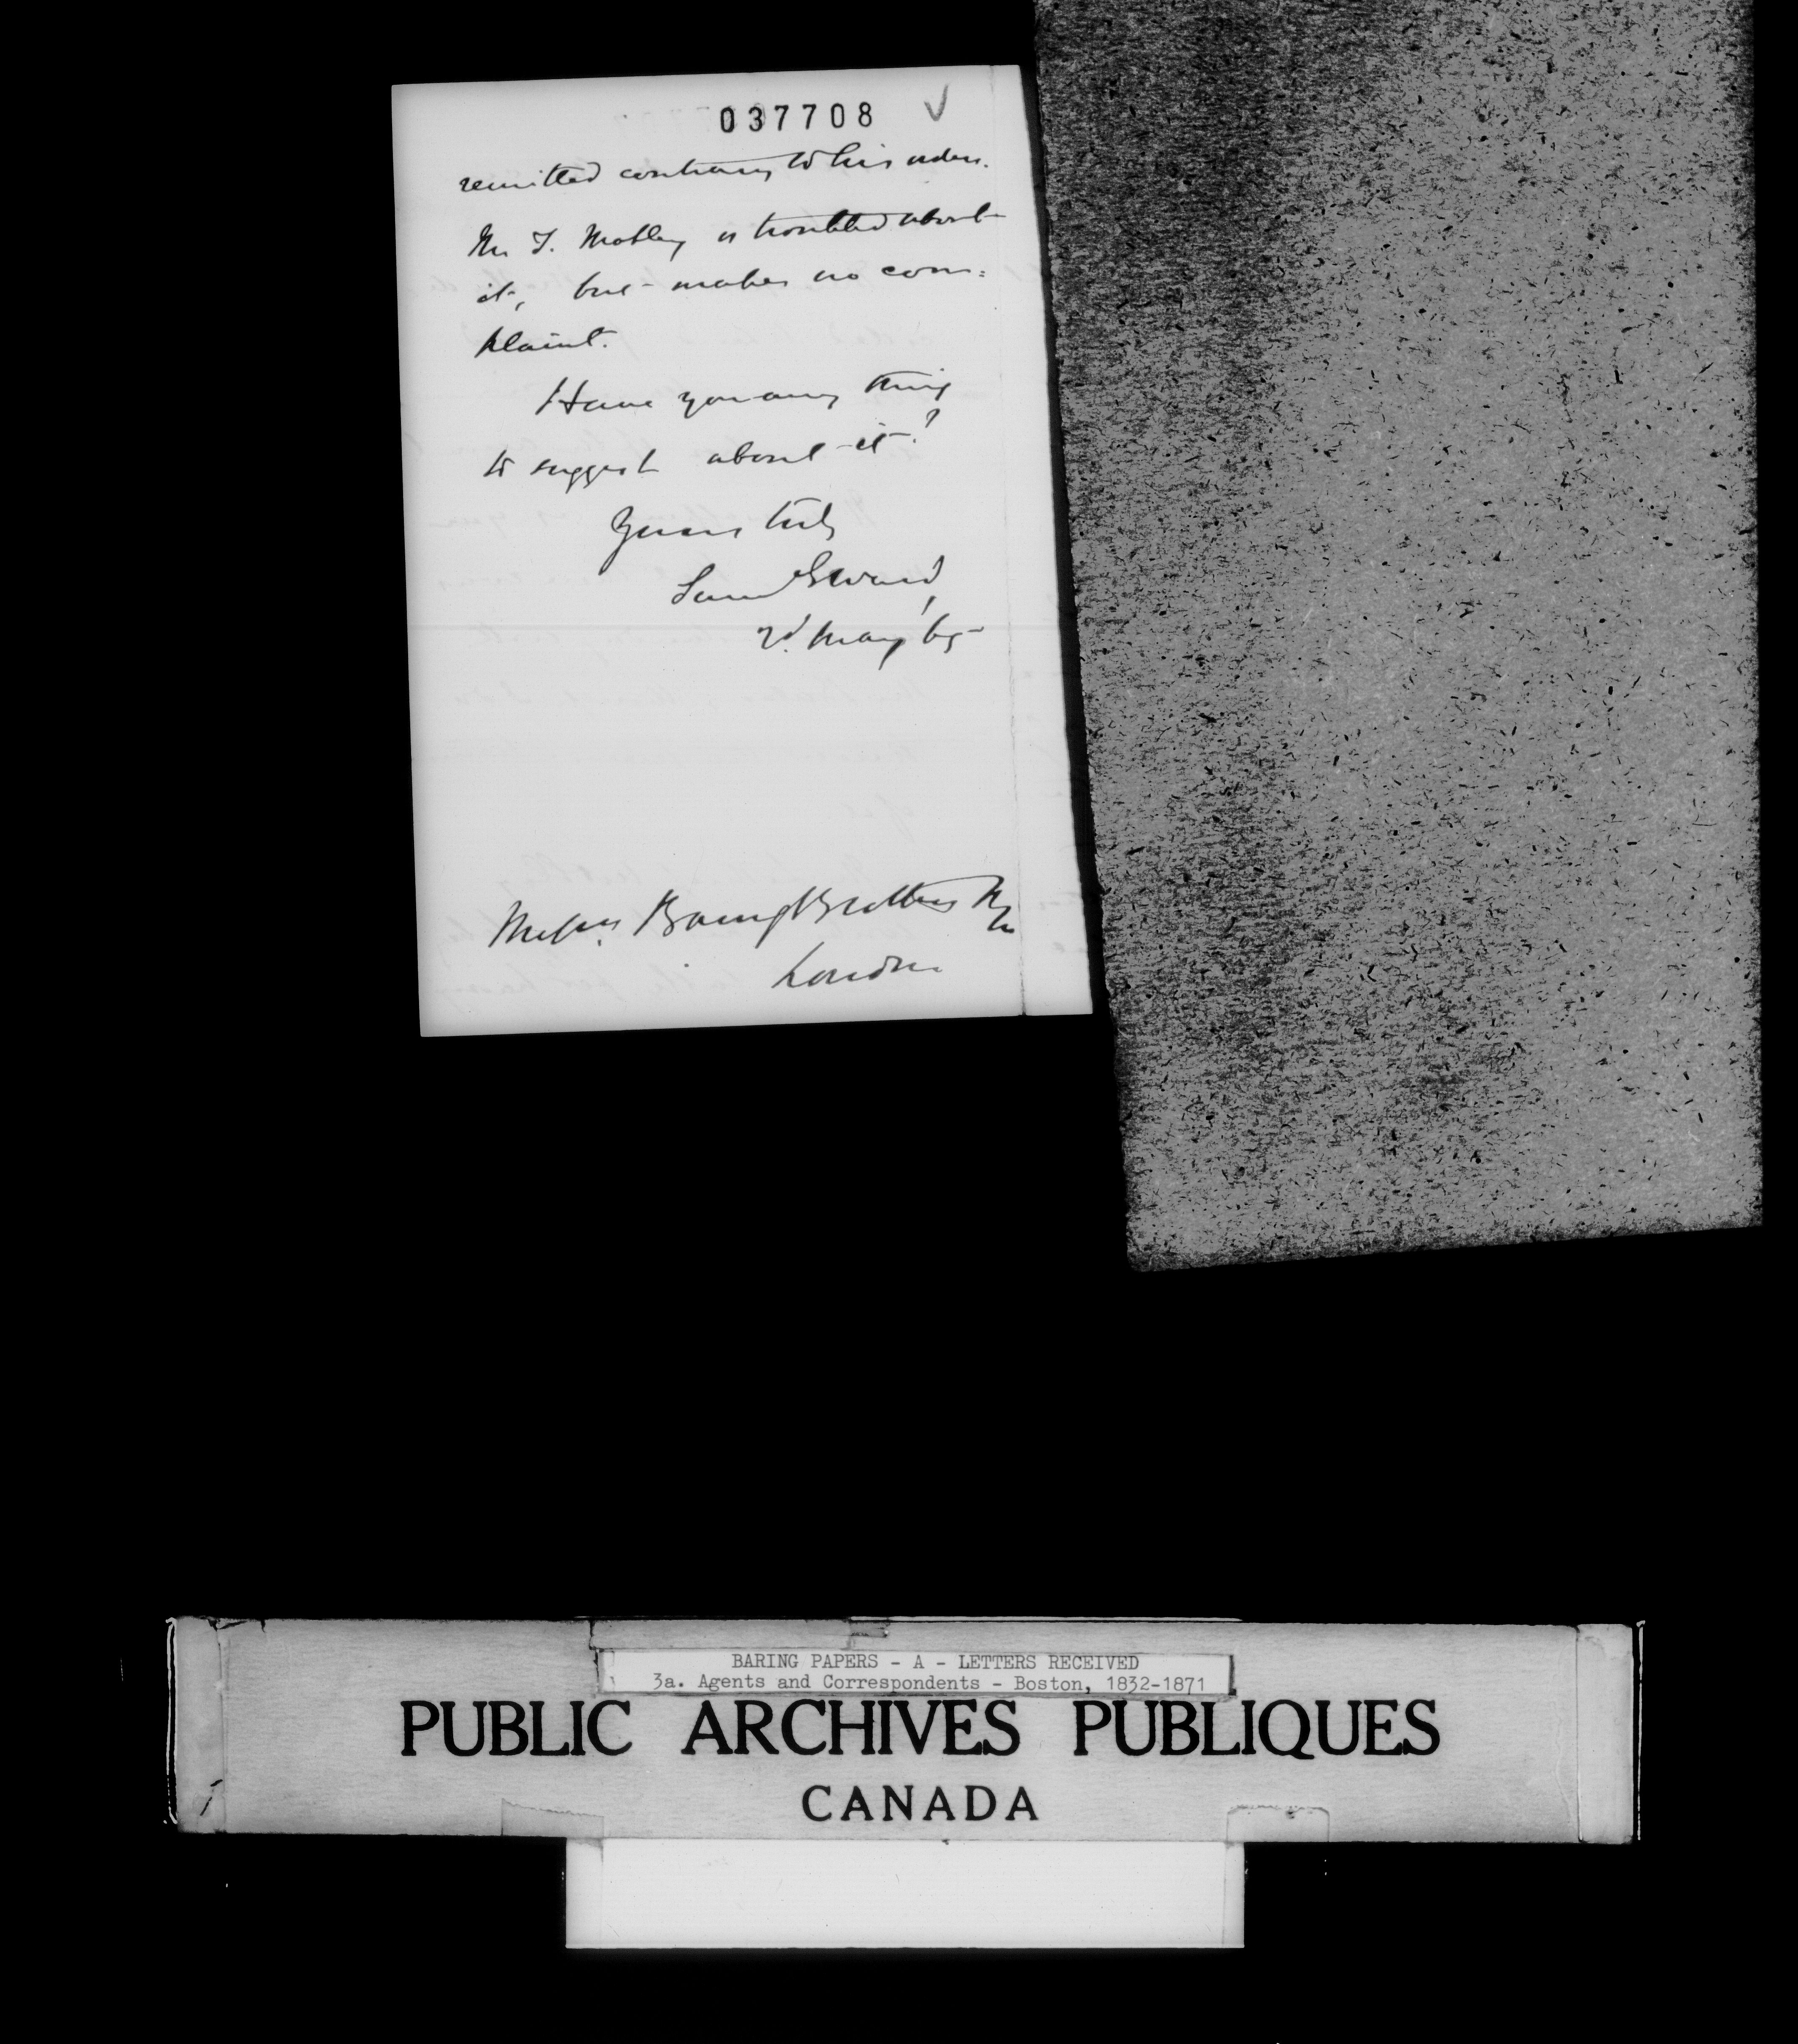 037708 ✓
remitted contrary to his orders.
Mr T. Motley is troubled about
it, but makes no com=
plaint.
Have you any thing
to suggest about it?
Yours truly
Sam G Ward
2d. May 65
Messrs. Baring Brothers & Co
London
BARING PAPERS - A - LETTERS RECEIVED
3a. Agents and Correspondents - Boston, 1832-1871
PUBLIC ARCHIVES PUBLIQUES
CANADA